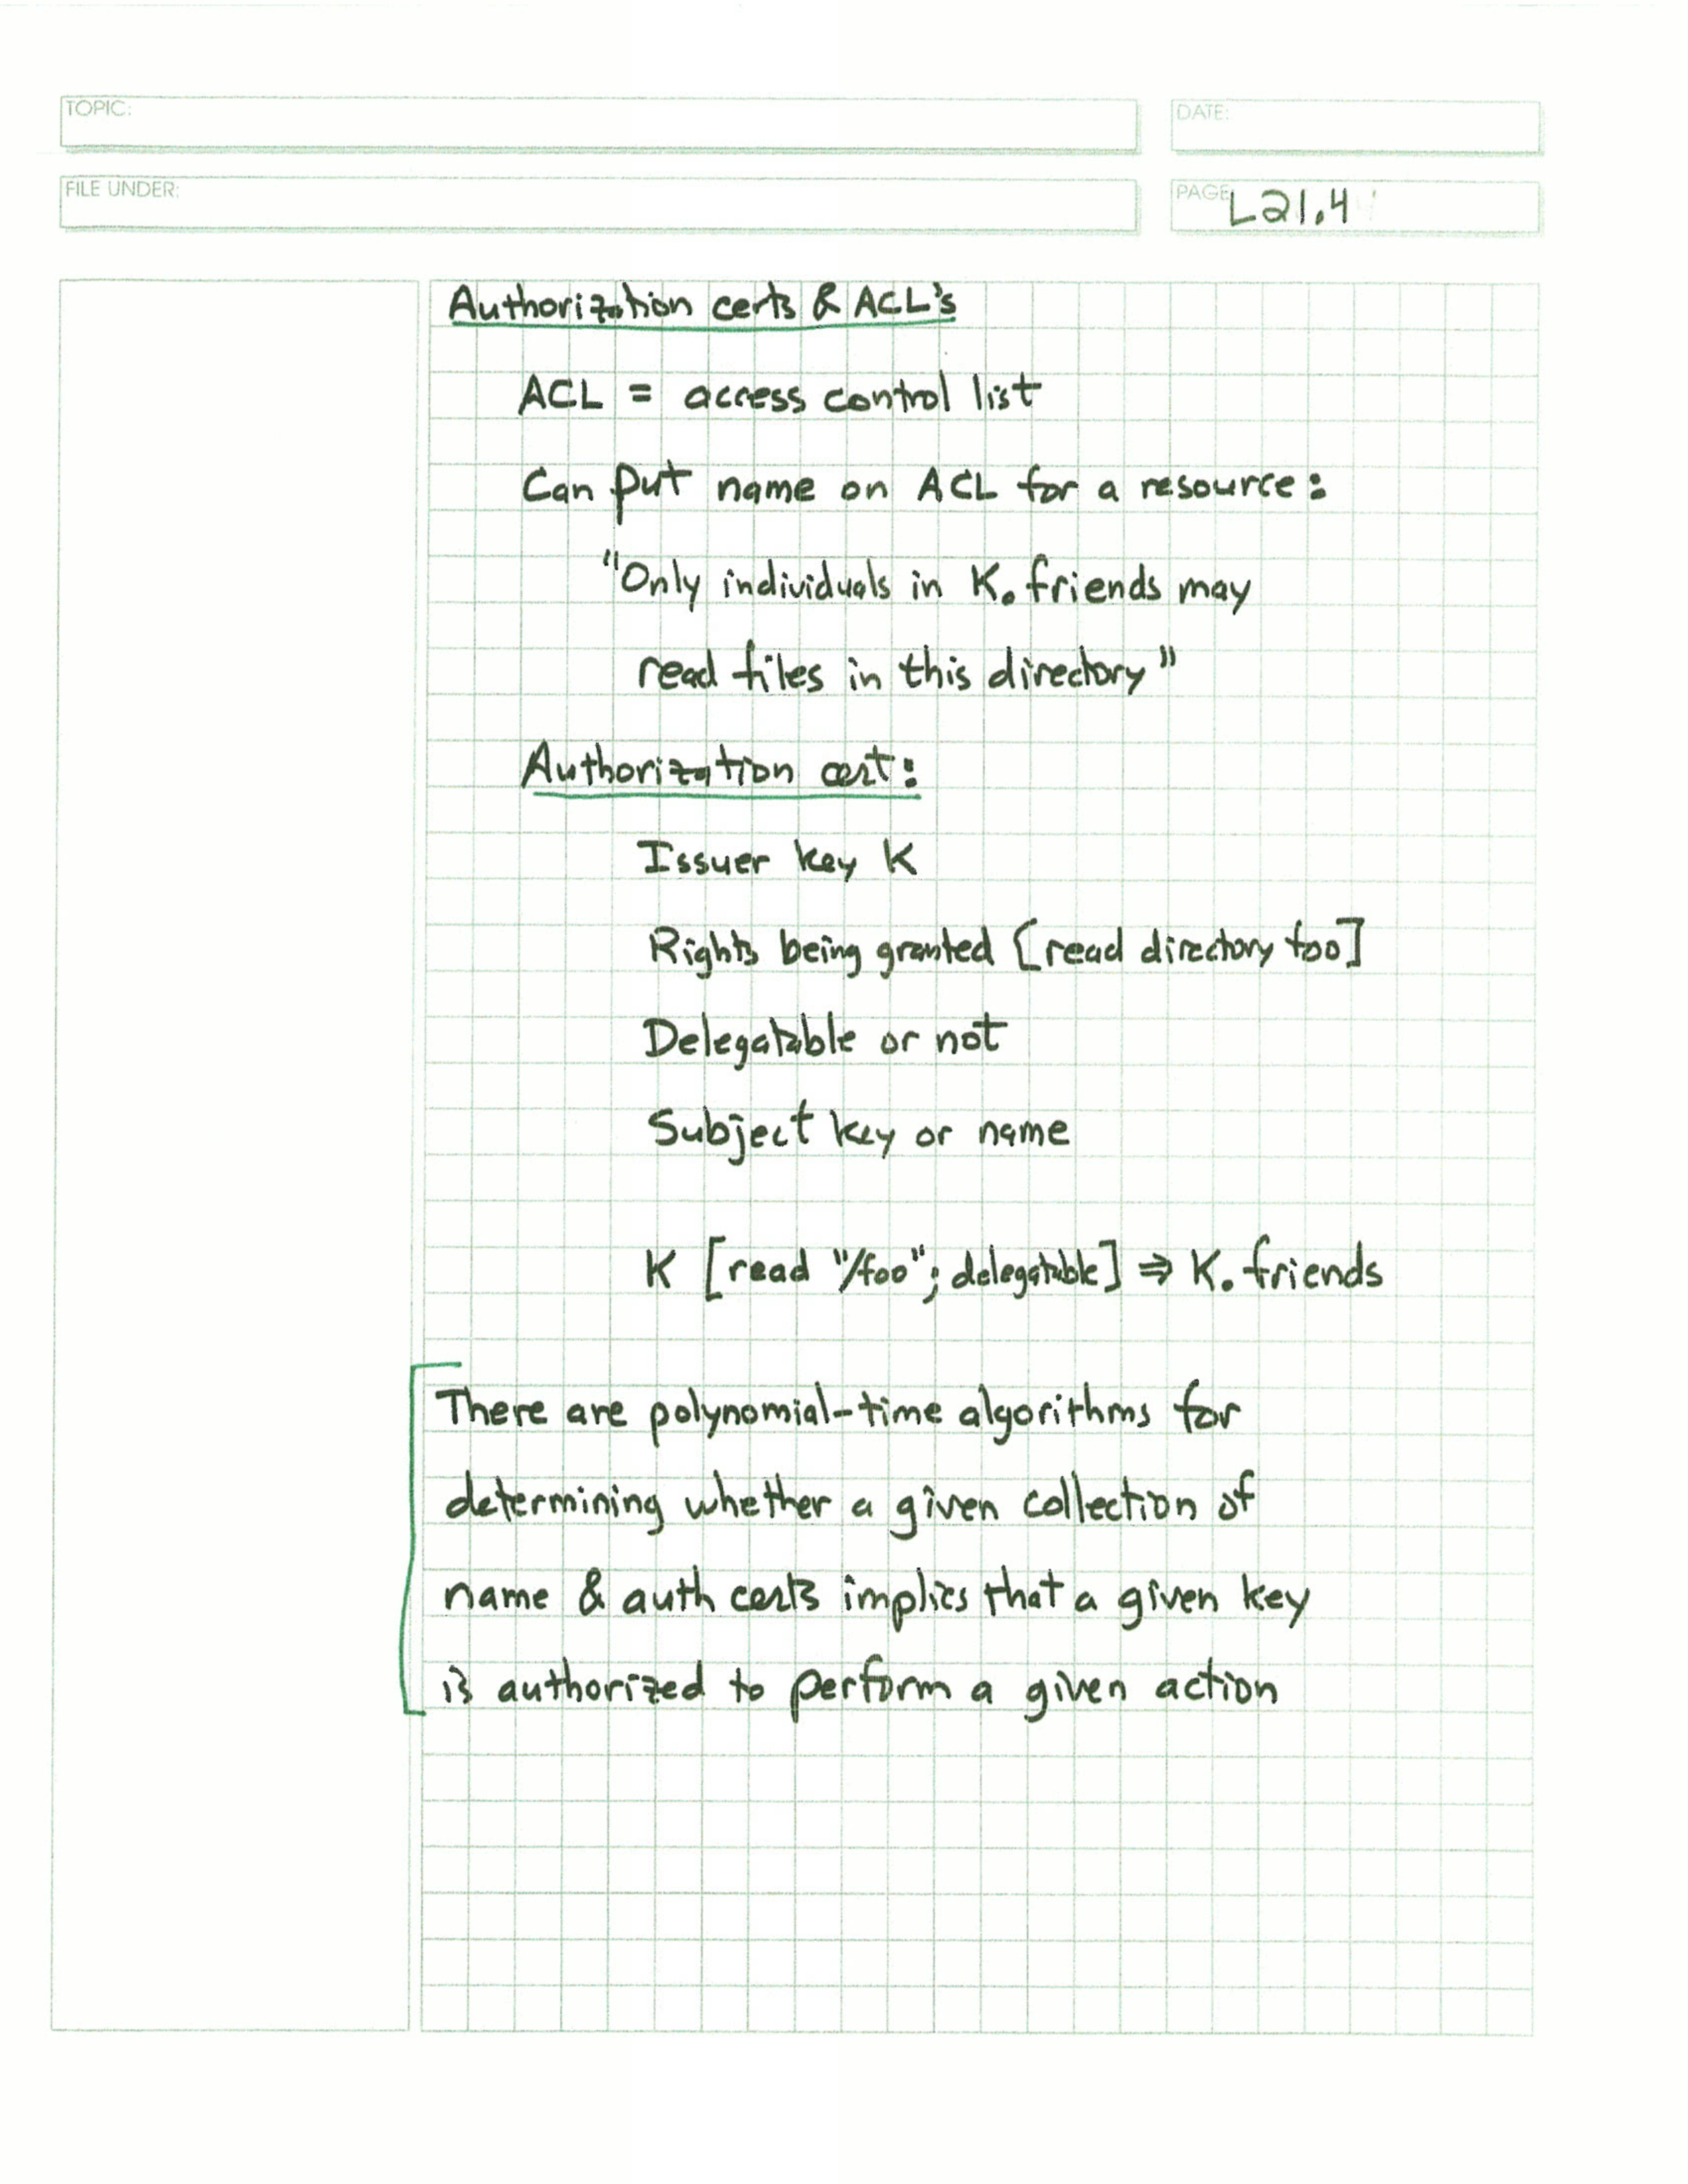 TOPIC:
DATE:
FILE UNDER:
PAGE L21.4
Authorization certs & ACL's
ACL = access control list
Can put name on ACL for a resource:
"Only individuals in K. friends may
read files in this directory"
Authorization cert:
Issuer key K
Rights being granted [read directory foo]
Delegatable or not
Subject key or name
K [read "/foo"; delegatable] ⇒ K. friends
There are polynomial-time algorithms for
determining whether a given collection of
name & auth certs implies that a given key
is authorized to perform a given action